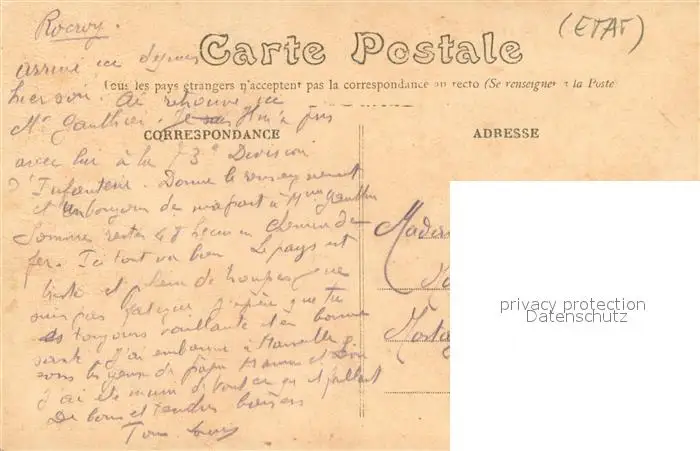 Rocroy.
(ETAT)
Carte Postale
Tous les pays étrangers n'acceptent pas la correspondance au recto (Se renseigner à la Poste
arrivé ici depuis
hier soir. Ai retrouvé ici
Mr Gauthier. Il m'a pris
CORRESPONDANCE
ADRESSE
avec lui à la 73e Division
d'Infanterie. Donne le renseignement
et un bonjour de ma part à Mme Gauthier
Sommes restés 48 heures en chemin de
fer. Ici tout va bien. Le pays est
triste et plein de troupes je ne
suis pas fatigué j'espère que tu
es toujours vaillante et en bonne
santé. J'ai embarqué à
sous les yeux de papa Maman et
j'ai été muni de tout ce qu'il fallait
De bons et tendres baisers
Ton Louis
Madame
privacy protection
Datenschutz